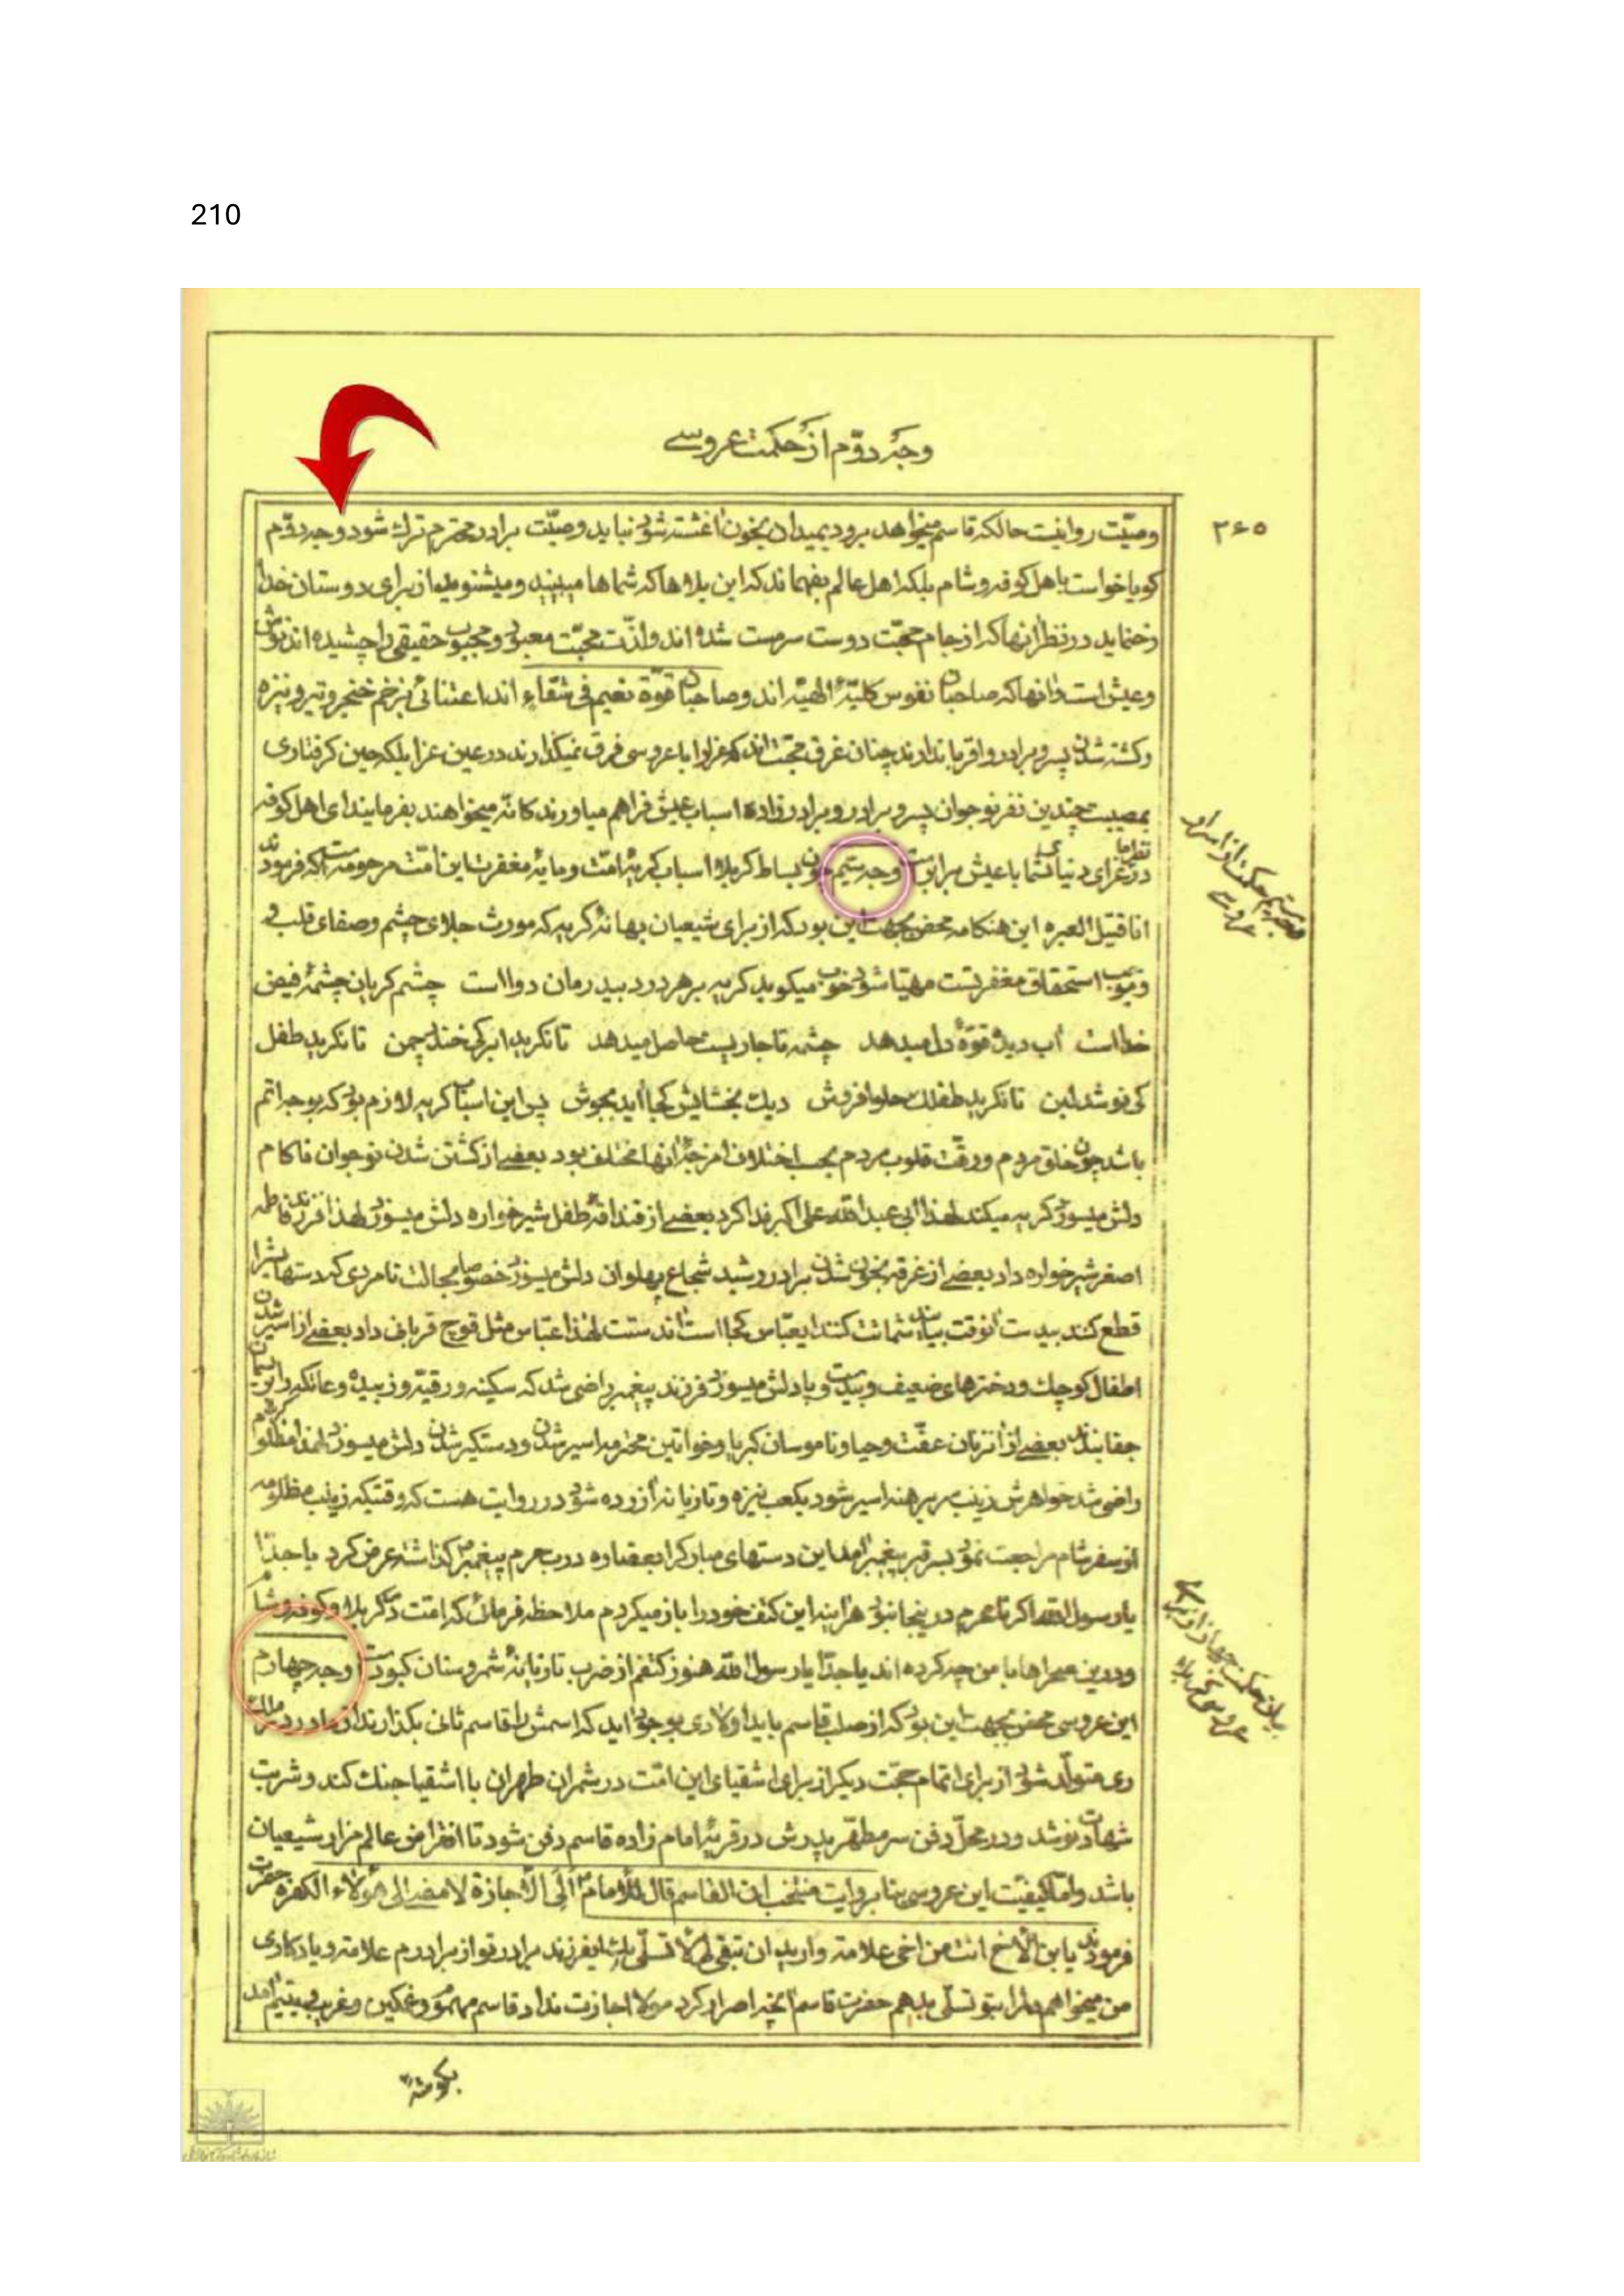 210
وجه دوّم از حکمت عروسے
۲۶۵
وصیّت روا نیست حالکه قاسم میخواهد برود بمیدان بخون اغشته شود نباید وصیّت برادر محترم ترك شود وجه دوّم
کویا خواست باهل کوفه و شام بلکه اهل عالم بفهماند که این بلاها که شماها میبینید و میشنوید از برای دوستان خدا
رخ نماید در نظر انها که از جام محبّت دوست سرمست شده اند و لذّت محبّت معبود و محبوب حقیقی را چشیده اند نوش
و عیش است و انها که صاحبان نفوس کلیّهٔ الهیّه اند و صاحبان قوّة نعیم فی شقاء اند اعتنائی بزخم خنجر و تیر و نیزه
و کشته شدن پسر و برادر و اقربا ندارند چنان غرق محبّت اند که عزا را با عروسی فرق نمیکذارند در عین عزا بلکه حین کرفتاری
بمصیبت چندین نفر نوجوان پسر و برادر و برادر زاده اسباب عیش فراهم میاورند کانّه میخواهند بفرمایند ای اهل کوفه
در نظر ما عزای دنیای شما با عیش برابر است وجه سیّم چون بساط کربلا اسباب کریهٔ امّت و مایهٔ مغفرت این امّت مرحومه است که فرمودند
انا قتیل العبره این هنکامه محض بجهت این بود که از برای شیعیان بهانهٔ کریه که مورث جلای چشم و صفای قلب
و موجب استحقاق مغفرتست مهیّا شود خوب میکوید کریه بر هر درد بیدرمان دوا است چشم کریان چشمهٔ فیض
خدا است اب دیده قوّهٔ دل میدهد چشمه تا جاریست حاصل میدهد تا نکرید ابر کی خندد چمن تا نکرید طفل
کی نوشد لبن تا نکرید طفلك حلوا فروش دیك بخشایش کجا اید بجوش پس این اسباب کریه لازم بود که بوجه اتم
باشد چون خلق مردم و رقّت قلوب مردم بحسب اختلاف امزجهٔ انها مختلف بود بعضے از کشتن شدن نوجوان ناکام
دلش میسوزد کریه میکند لهذا ابی عبد الله علی اکبر فدا کرد بعضے از قنداقهٔ طفل شیر خواره دلش میسوزد لهذا فرزند فاطمه
اصغر شیر خواره داد بعضے از غرقه بخون شدن برادر رشید شجاع پهلوان دلش میسوزد خصوصا بحالت نامردی که دستهایش را
قطع کنند انوقت شماتت کنند ایعبّاس کجا است لهذا عبّاس مثل قوچ قربانی داد بعضے از اسیر شدن
اطفال کوچك و دخترهای ضعیف و بیدست و پا دلش میسوزد فرزند پیغمبر راضی شد که سکینه و رقیّه و زبیده و عاتکه را بریسمان
جفا بندند بعضے از زنان عفّت و حیا و ناموسان کبریا و خواتین محترمه اسیر شدن و دستکیر شدن دلش میسوزد لهذا مظلوم کربلا
راضی شد خواهرش زینب سر برهنه اسیر شود بکعب نیزه و تازیانه ازرده شود در روایت هست که وقتیکه زینب مظلومه
از سفر شام مراجعت نمود بسر قبر پیغمبر امد این دستهای مبارکرا بعضاده درب حرم پیغمبر کذاشته عرض کرد یا جدّا
یا رسول الله اکر نامحرم در ینجا نبود هراینه این کتف خود را باز میکردم ملاحظه فرمائی که امّت در کربلا و کوفه و شام
و در ین صحراها با من چه کرده اند یا جدّا یا رسول الله هنوز کتفم از ضرب تازیانهٔ شمر و سنان کبود است وجه چهارم
این عروسی محض بجهت این بود که از صلب قاسم باید اولادی بوجود اید که اسمش را قاسم ثانی بکذارند از مادر در ملك
ری متولّد شود از برای اتمام حجّت دیکر از برای اشقیای این امّت در شمران طهران با اشقیا جنك کند و شربت
شهادت نوشد و در محلّ دفن سر مطهّر پدرش در قریهٔ امام زاده قاسم دفن شود تا انقراض عالم مزار شیعیان
باشد و امّا کیفیّت این عروسی بنا بروایت منتخب ان القاسم قال للامام الی الاجازة لامضی الی هؤلاء الکفره حضرت
فرمودند یا بن الاخ انت من اخی علامة و ارید ان تبقی لی لا تسلّی بك ایفرزند برادر تو از برادرم علامت و یادکاری
من میخواهم دلرا بتو تسلّی بدهم حضرت قاسم انچه اصرار کرد مولا اجازت نداد قاسم مهموم و غمکین و غریب و یتیم امد
بکوشهٔ